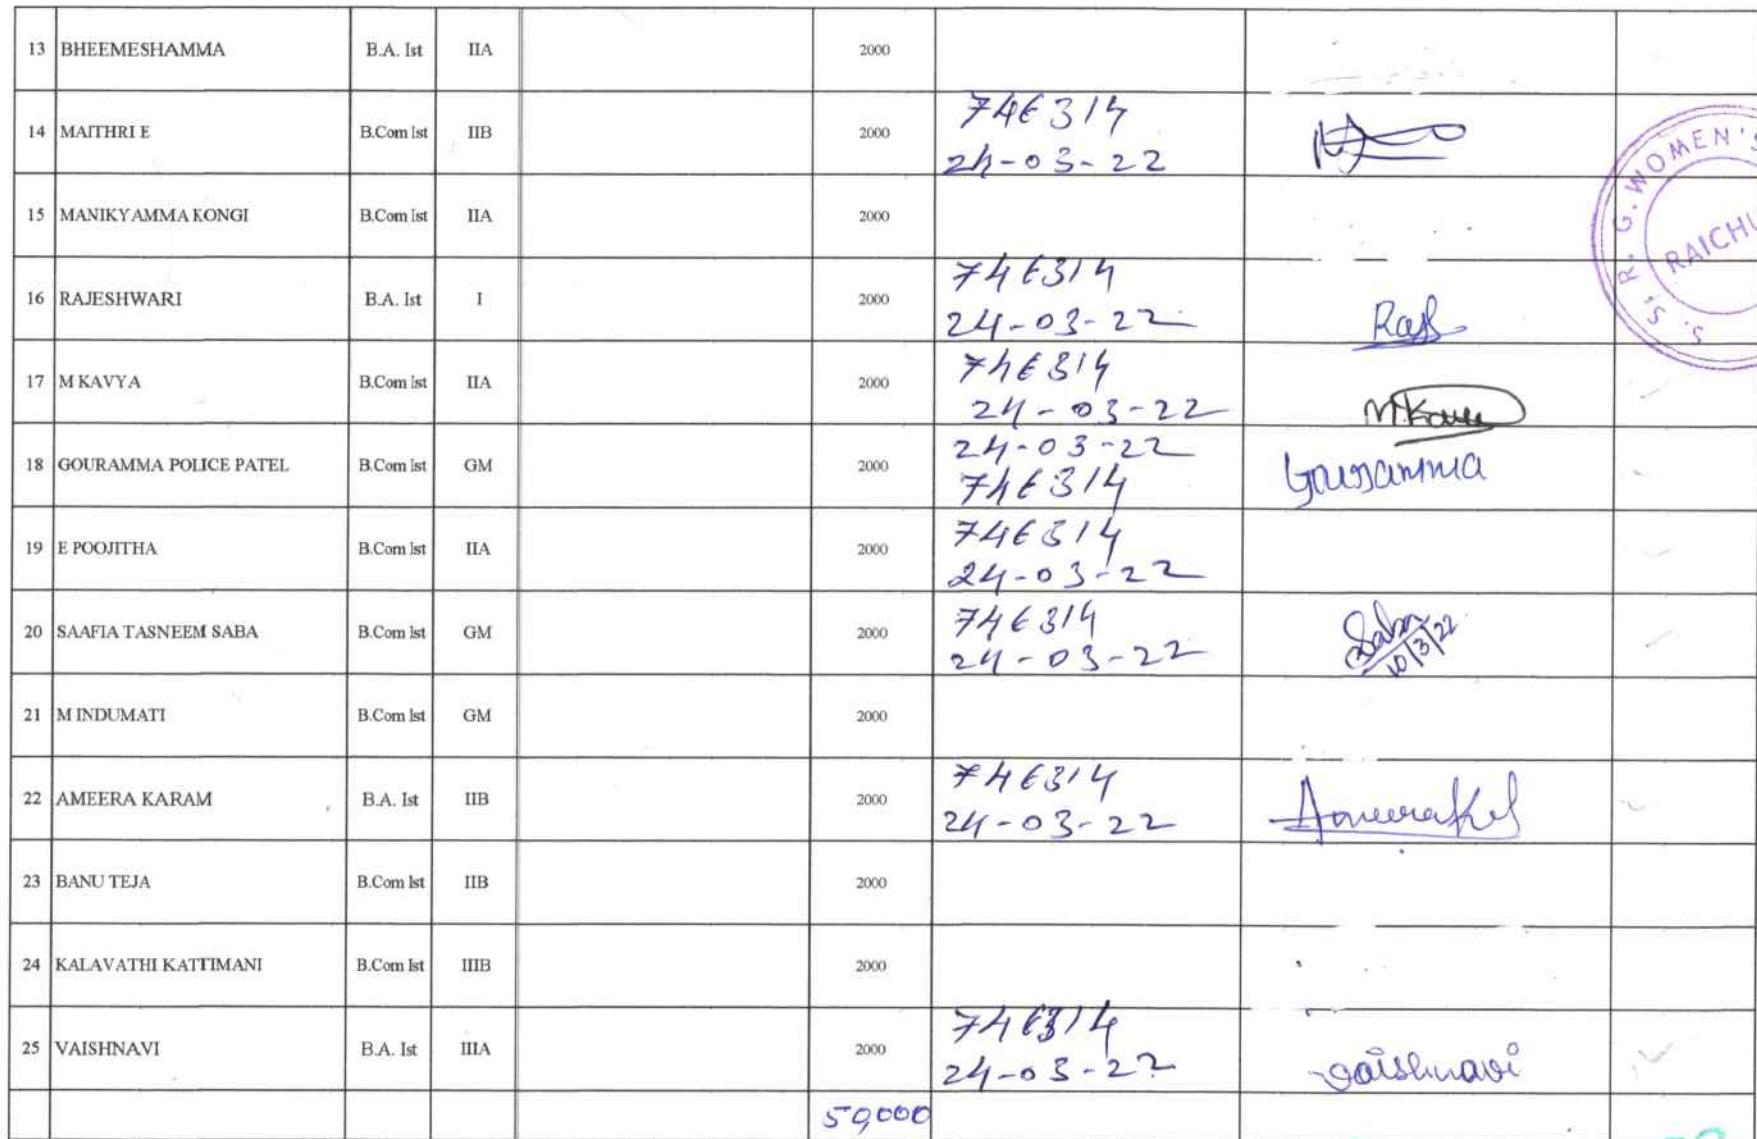 13 BHEEMESHAMMA B.A. Ist IIA 2000
14 MAITHRI E B.Com Ist IIB 2000 746314
24-03-22
15 MANIKYAMMA KONGI B.Com Ist IIA 2000
16 RAJESHWARI B.A. Ist I 2000 746314
24-03-22
17 M KAVYA B.Com Ist IIA 2000 746314
24-03-22
18 GOURAMMA POLICE PATEL B.Com Ist GM 2000 24-03-22 Gouramma
746314
19 E POOJITHA B.Com Ist IIA 2000 746314
24-03-22
20 SAAFIA TASNEEM SABA B.Com Ist GM 2000 746314 Saba
24-03-22 10/3/22
21 M INDUMATI B.Com Ist GM 2000
22 AMEERA KARAM B.A. Ist IIB 2000 746314
24-03-22
23 BANU TEJA B.Com Ist IIB 2000
24 KALAVATHI KATTIMANI B.Com Ist IIIB 2000
25 VAISHNAVI B.A. Ist IIIA 2000 746314
24-03-22 vaishnavi
50,000
S. S. R. G. WOMEN'S
RAICHU